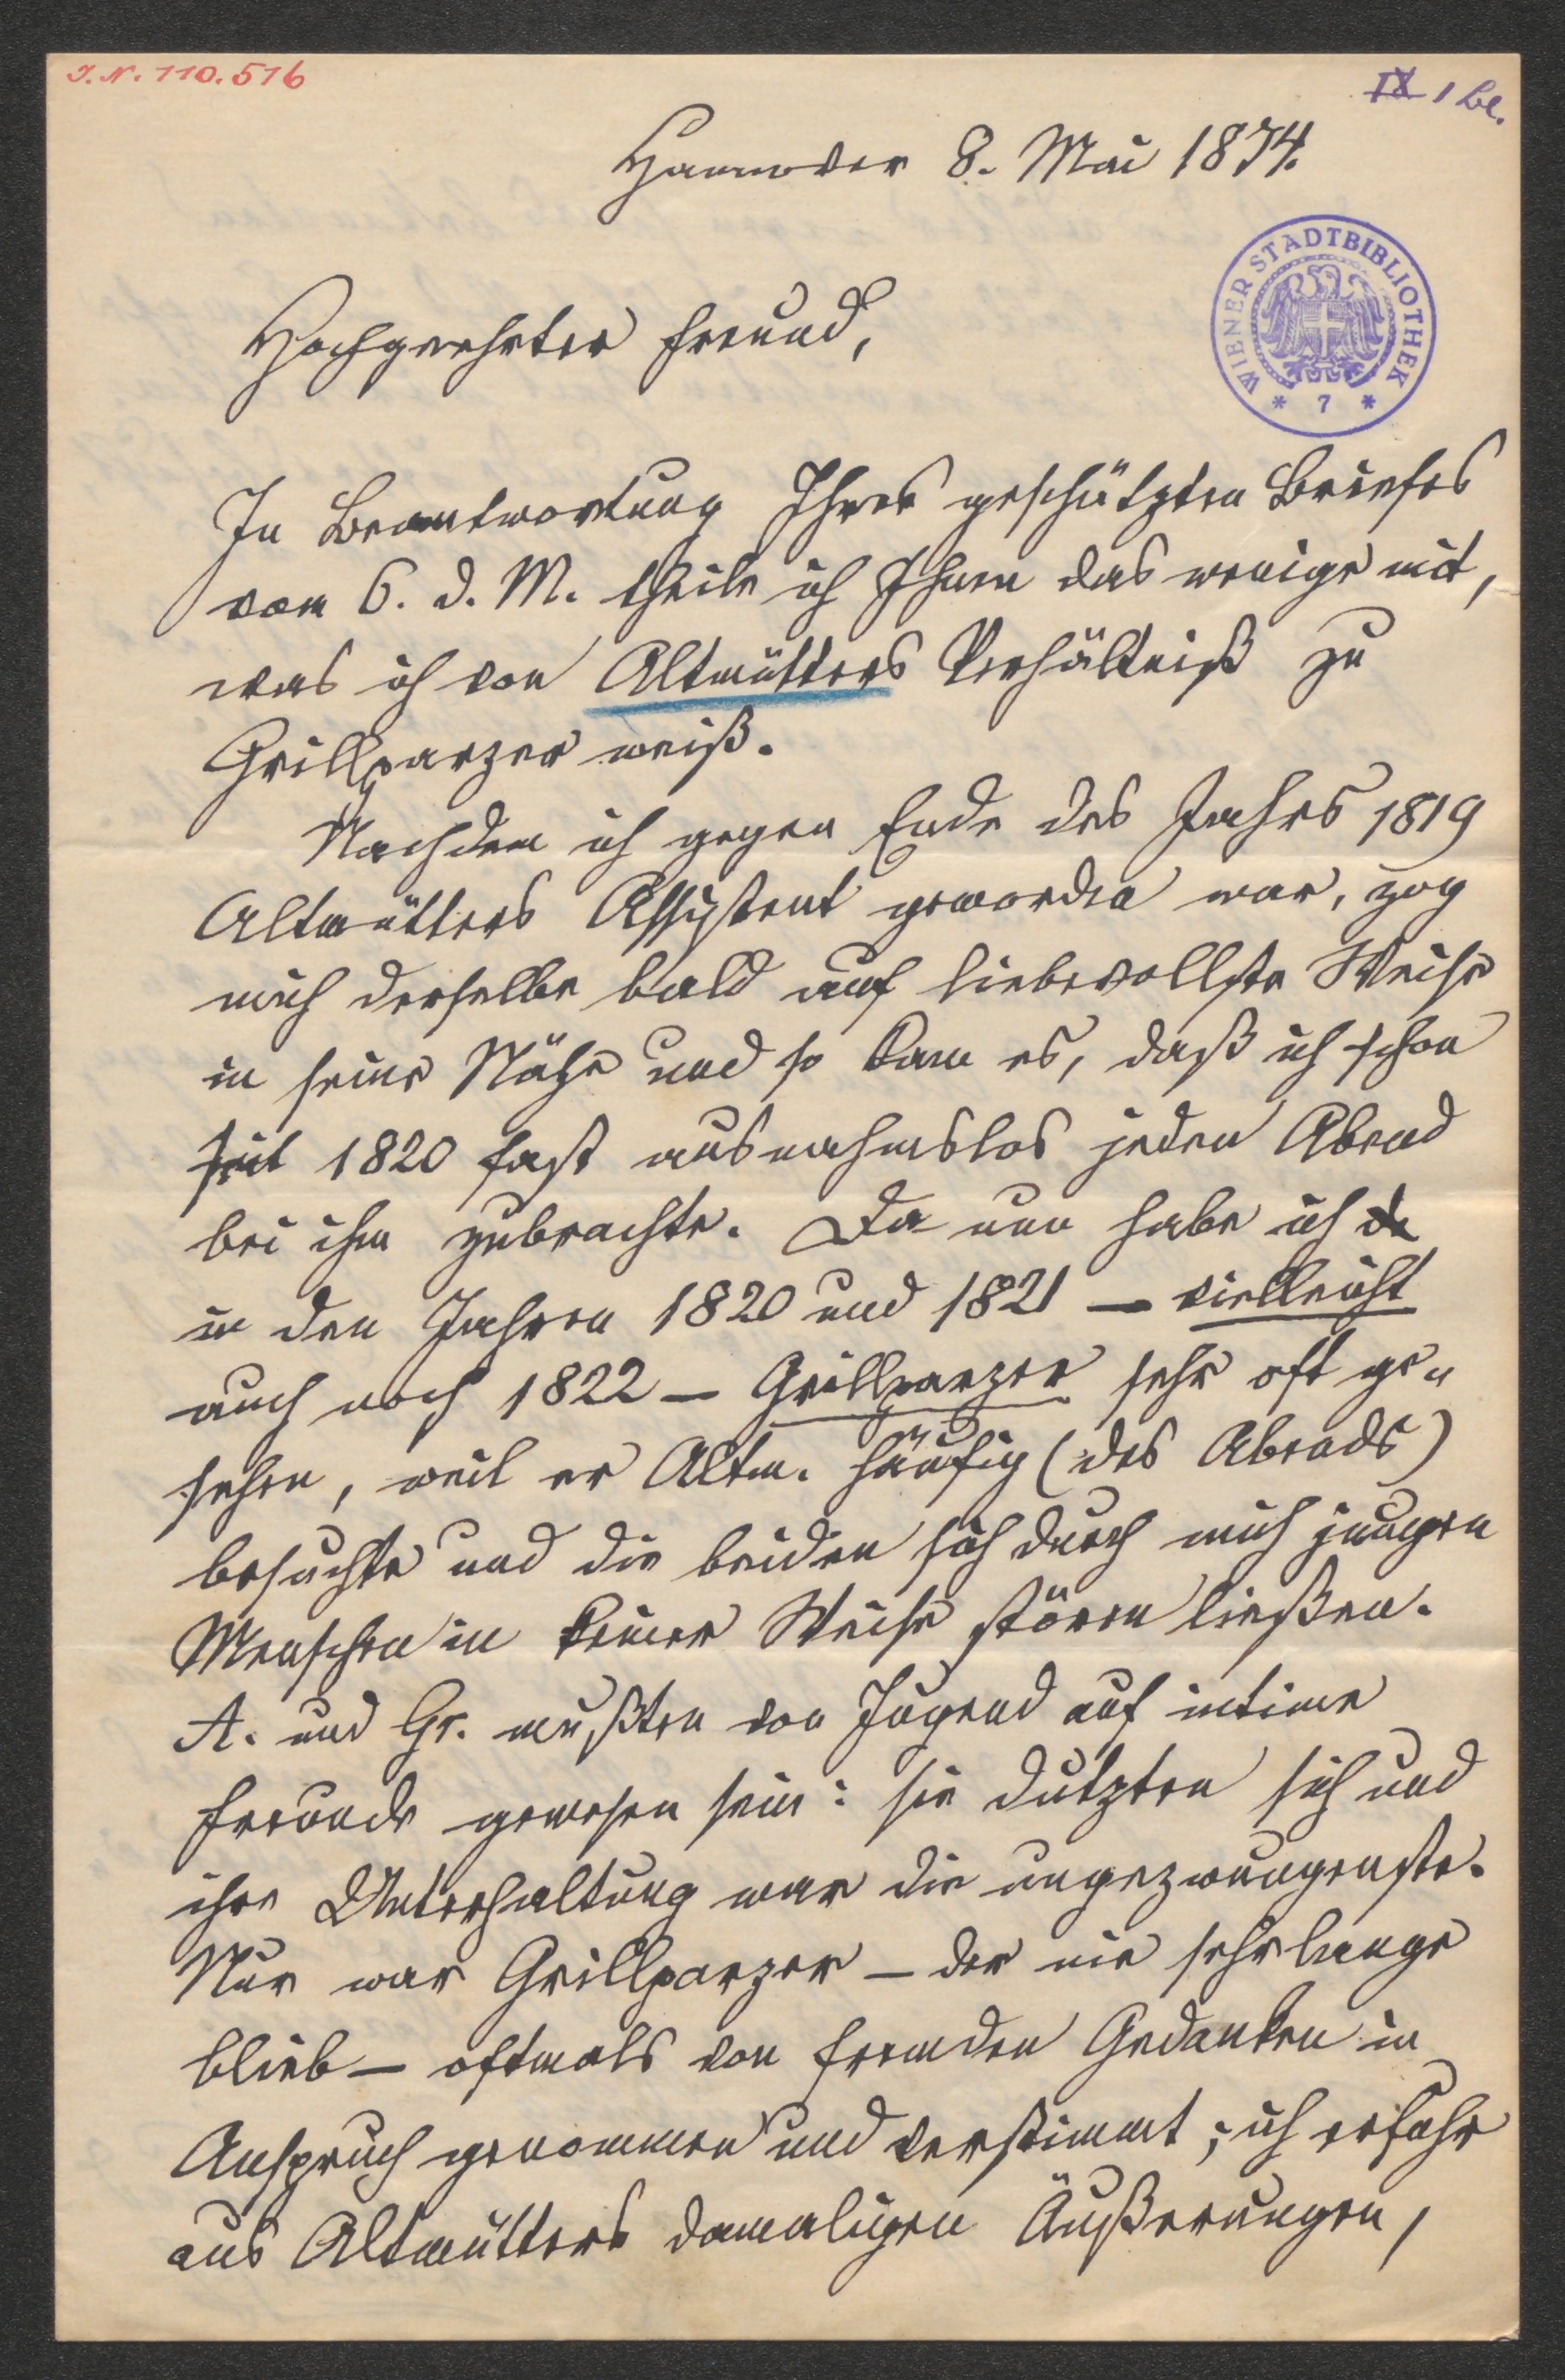 J. N. 110.516
IX 1 Bl.
Hannover 8. Mai 1874.
WIENER STADTBIBLIOTHEK
* 7 *
Hochgeehrter Freund,
In Beantwortung Ihres geschätzten Briefes
vom 6. d. M. theile ich Ihnen das wenige mit,
was ich von Altmütters Verhältniß zu
Grillparzer weiß.
Nachdem ich gegen Ende des Jahrs 1819
Altmütters Assistent geworden war, zog
mich derselbe bald auf liebevollste Weise
in seine Nähe und so kam es, daß ich schon
seit 1820 fast ausnahmslos jeden Abend
bei ihm zubrachte. Da nun habe ich de
in den Jahren 1820 und 1821 – vielleicht
auch noch 1822 – Grillparzer sehr oft ge-
sehen, weil er Altm. häufig (des Abends)
besuchte und die beiden sich durch mich jungen
Menschen in keiner Weise stören ließen.
A. und Gr. mußten von Jugend auf intime
Freunde gewesen sein: sie dutzten sich und
ihre Unterhaltung war die ungezwungenste.
Nur war Grillparzer – der nie sehr lange
blieb – oftmals von fremden Gedanken in
Anspruch genommen und verstimmt; ich erfuhr
aus Altmütters damaligen Äußerungen,